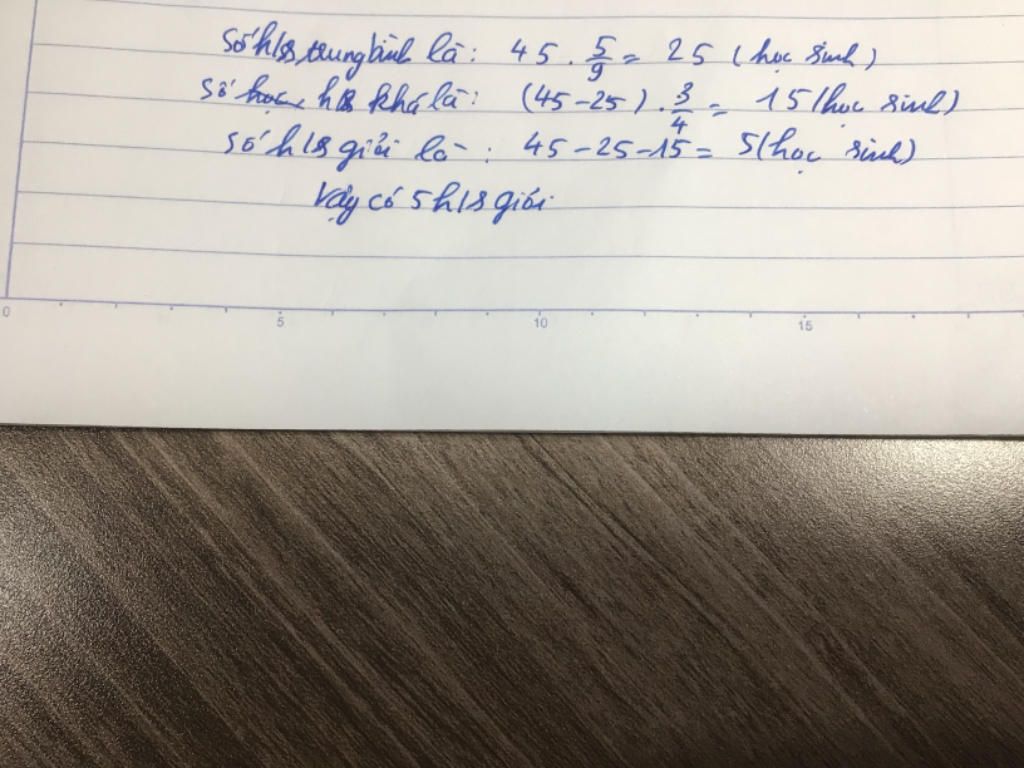 Số h/s trung bình là: 45 . 5/9 = 25 (học sinh)
Số học h/s khá là: (45-25) . 3/4 = 15 (học sinh)
Số h/s giỏi là: 45-25-15 = 5 (học sinh)
Vậy có 5 h/s giỏi
0 5 10 15